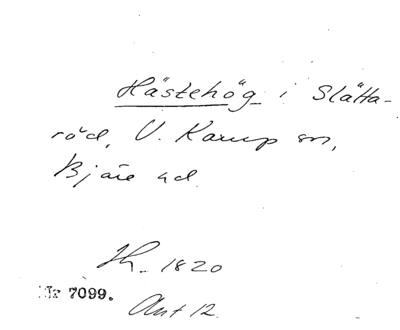 Hästehög i Slätta-
röd, V. Karup sn,
Bjäre hd.
Th. 1820
Nr 7099.
Avt 12.